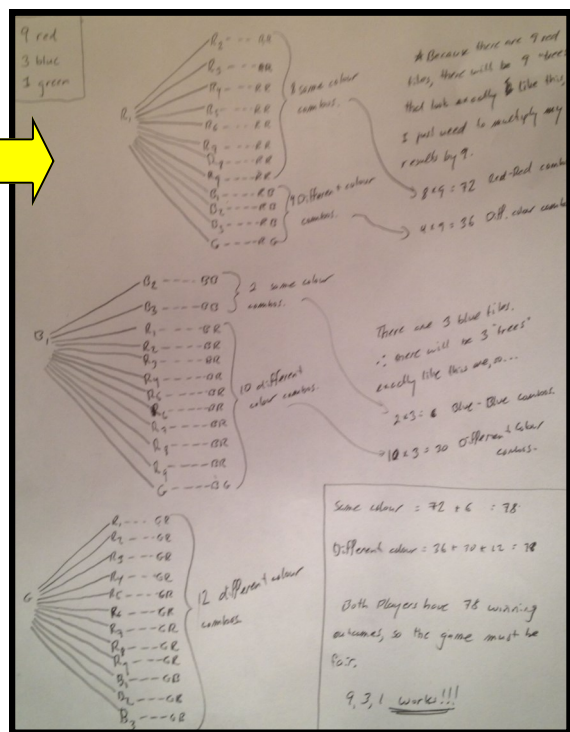 9 red
3 blue
1 green
R₁
R₂ --- RR
R₃ --- RR
R₄ --- RR
R₅ --- RR
R₆ --- RR
R₉ --- RR
B₁ --- RB
B₂ --- RB
B₃ --- RB
G --- RG
8 same colour
combos.
Different colour
combos.
* Because there are 9 red
tiles, there will be 9 "trees"
that look exactly like this,
I just need to multiply my
results by 9.
8 × 9 = 72 Red-Red combos
4 × 9 = 36 Diff. colour combos
B₁
B₂ ---- BB
B₃ ---- BB
R₁ ---- BR
R₂ ---- BR
R₃ ---- BR
R₄ ---- BR
R₅ ---- BR
R₆ ---- BR
R₇ ---- BR
R₈ ---- BR
R₉ ---- BR
G ---- BG
2 same colour
combos.
10 different
colour combos.
There are 3 blue tiles.
∴ there will be 3 "trees"
exactly like this one, so...
2×3 = 6 Blue-Blue combos
10 × 3 = 30 Different Colour
combos.
G
R₁ --- GR
R₂ --- GR
R₃ --- GR
R₄ --- GR
R₅ --- GR
R₆ --- GR
R₇ --- GR
R₈ --- GR
R₉ --- GR
B₁ --- GB
B₂ --- GB
B₃
12 different colour
combos.
Same colour = 72 + 6 = 78
Different colour = 36 + 30 + 12 = 78
Both Players have 78 winning
outcomes, so the game must be
fair.
9, 3, 1 works!!!